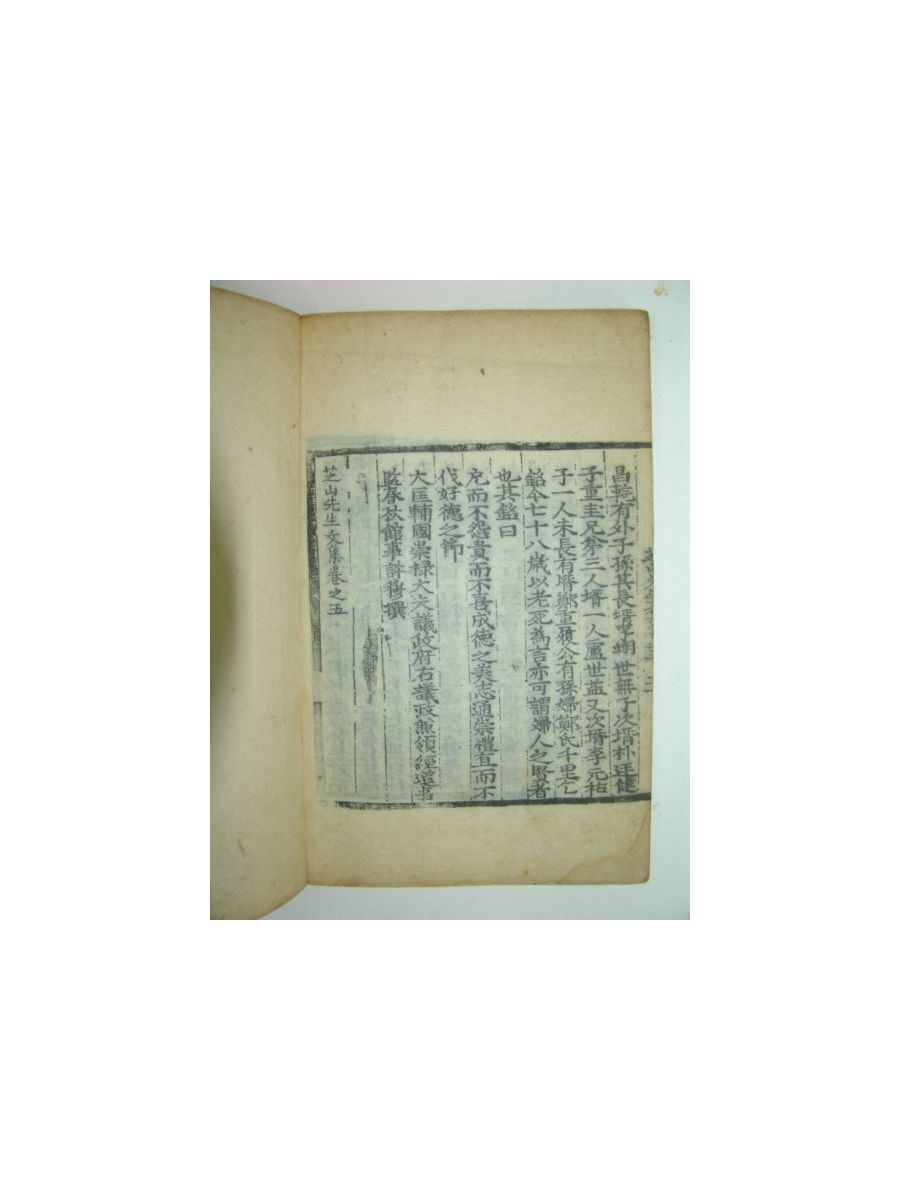 昌乾有外子孫其長壻李翊世無子次壻朴廷健
子重圭兄弟三人壻一人盧世益又次壻李元祜
子一人未長有壻鄭重履公有孫婦鄭氏千里乞
銘今七十八歲以老死為言亦可謂婦人之賢者
也其銘曰
而不怨貴而不喜成德之美志通崇禮直而不
伐好德之節
大匡輔國崇祿大夫議政府右議政兼領經筵事
監春秋館事許穆撰
芝山先生文集卷之五